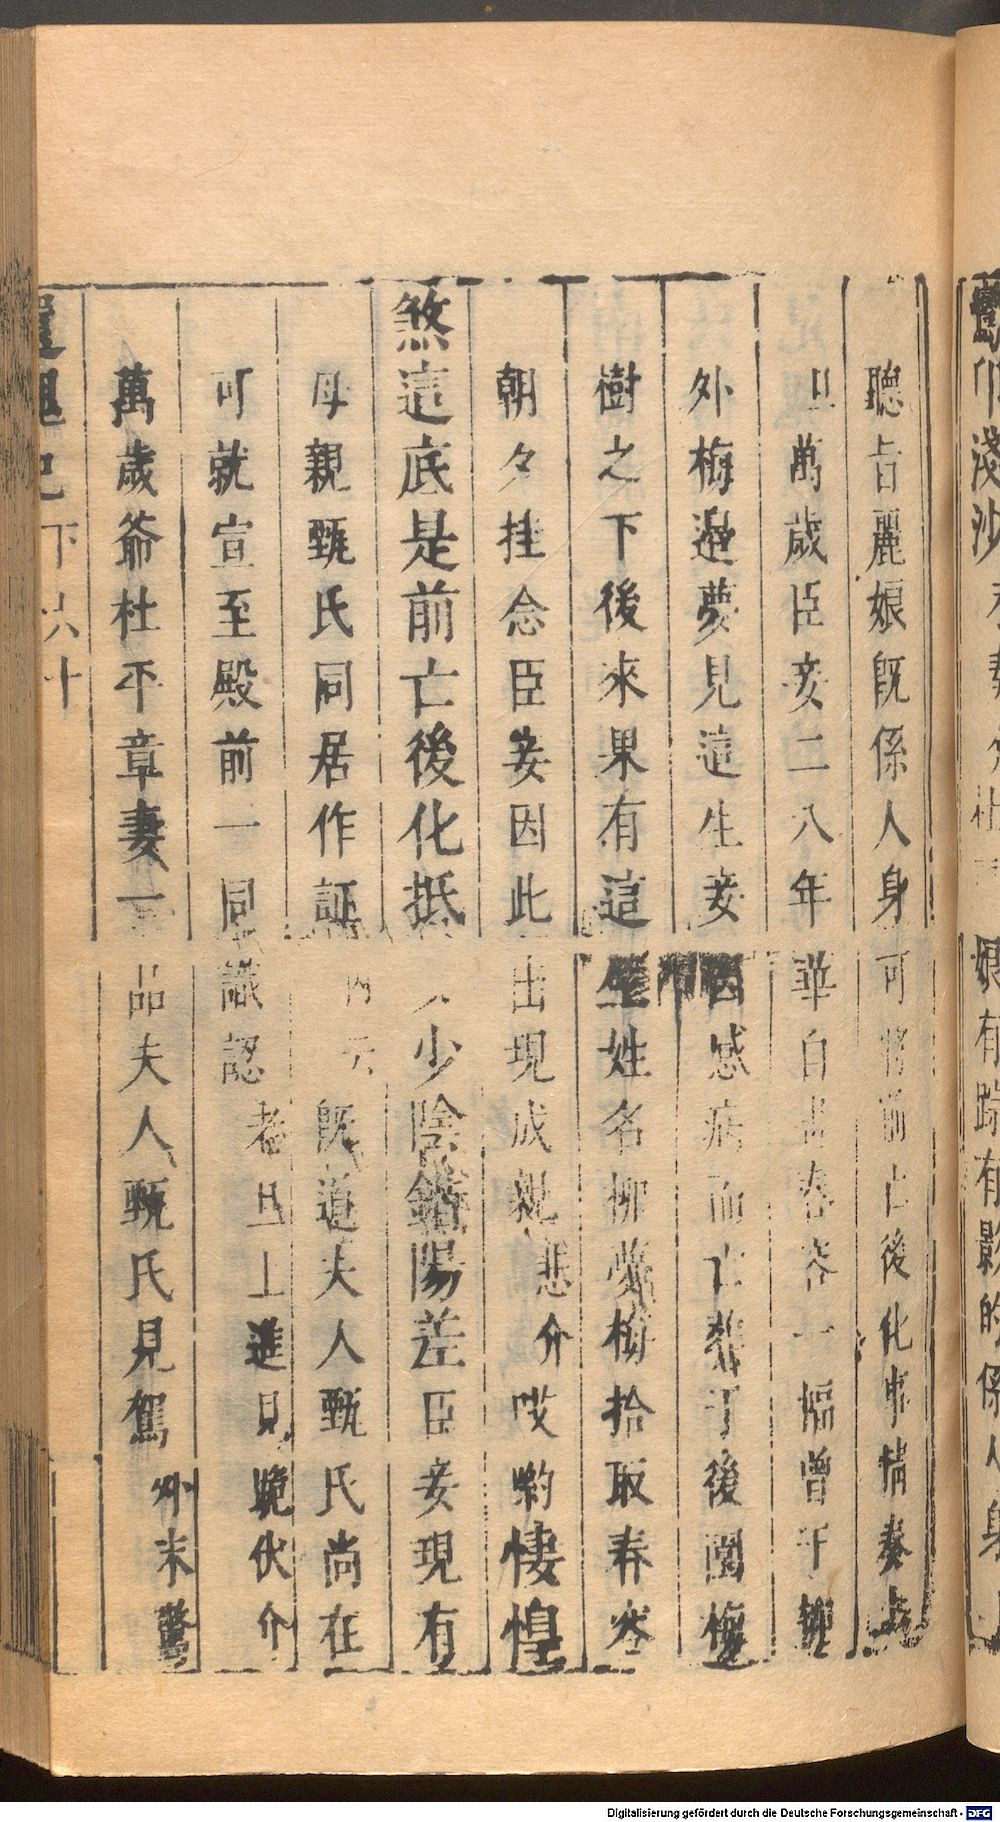 聽旨麗娘既係人身可將前亡後化事情奏上
旦萬歲臣妾二八年華自畵春容一幅曾于柳
外梅邊夢見這生妾因感病而亡葬于後園梅
樹之下後來果有這生姓名柳夢梅拾取春容
朝夕挂念臣妾因此出現成親悲介哎喲悽惶
煞這底是前亡後化抵少陰錯陽差臣妾現有
母親甄氏同居作証內云既道夫人甄氏尚在
可就宣至殿前一同識認老旦上進見跪伏介
萬歲爺杜平章妻一品夫人甄氏見駕外末驚
還魂記下六十
Digitalisierung gefördert durch die Deutsche Forschungsgemeinschaft - DFG